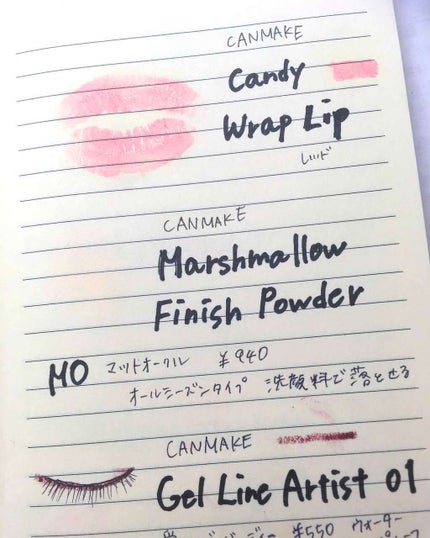 CANMAKE
Candy
Wrap Lip
CANMAKE
Marshmallow
Finish Powder
MO マットオークル ¥940
オールシーズンタイプ 洗顔料で落とせる
CANMAKE
Gel Line Artist 01
¥550 ウォーター